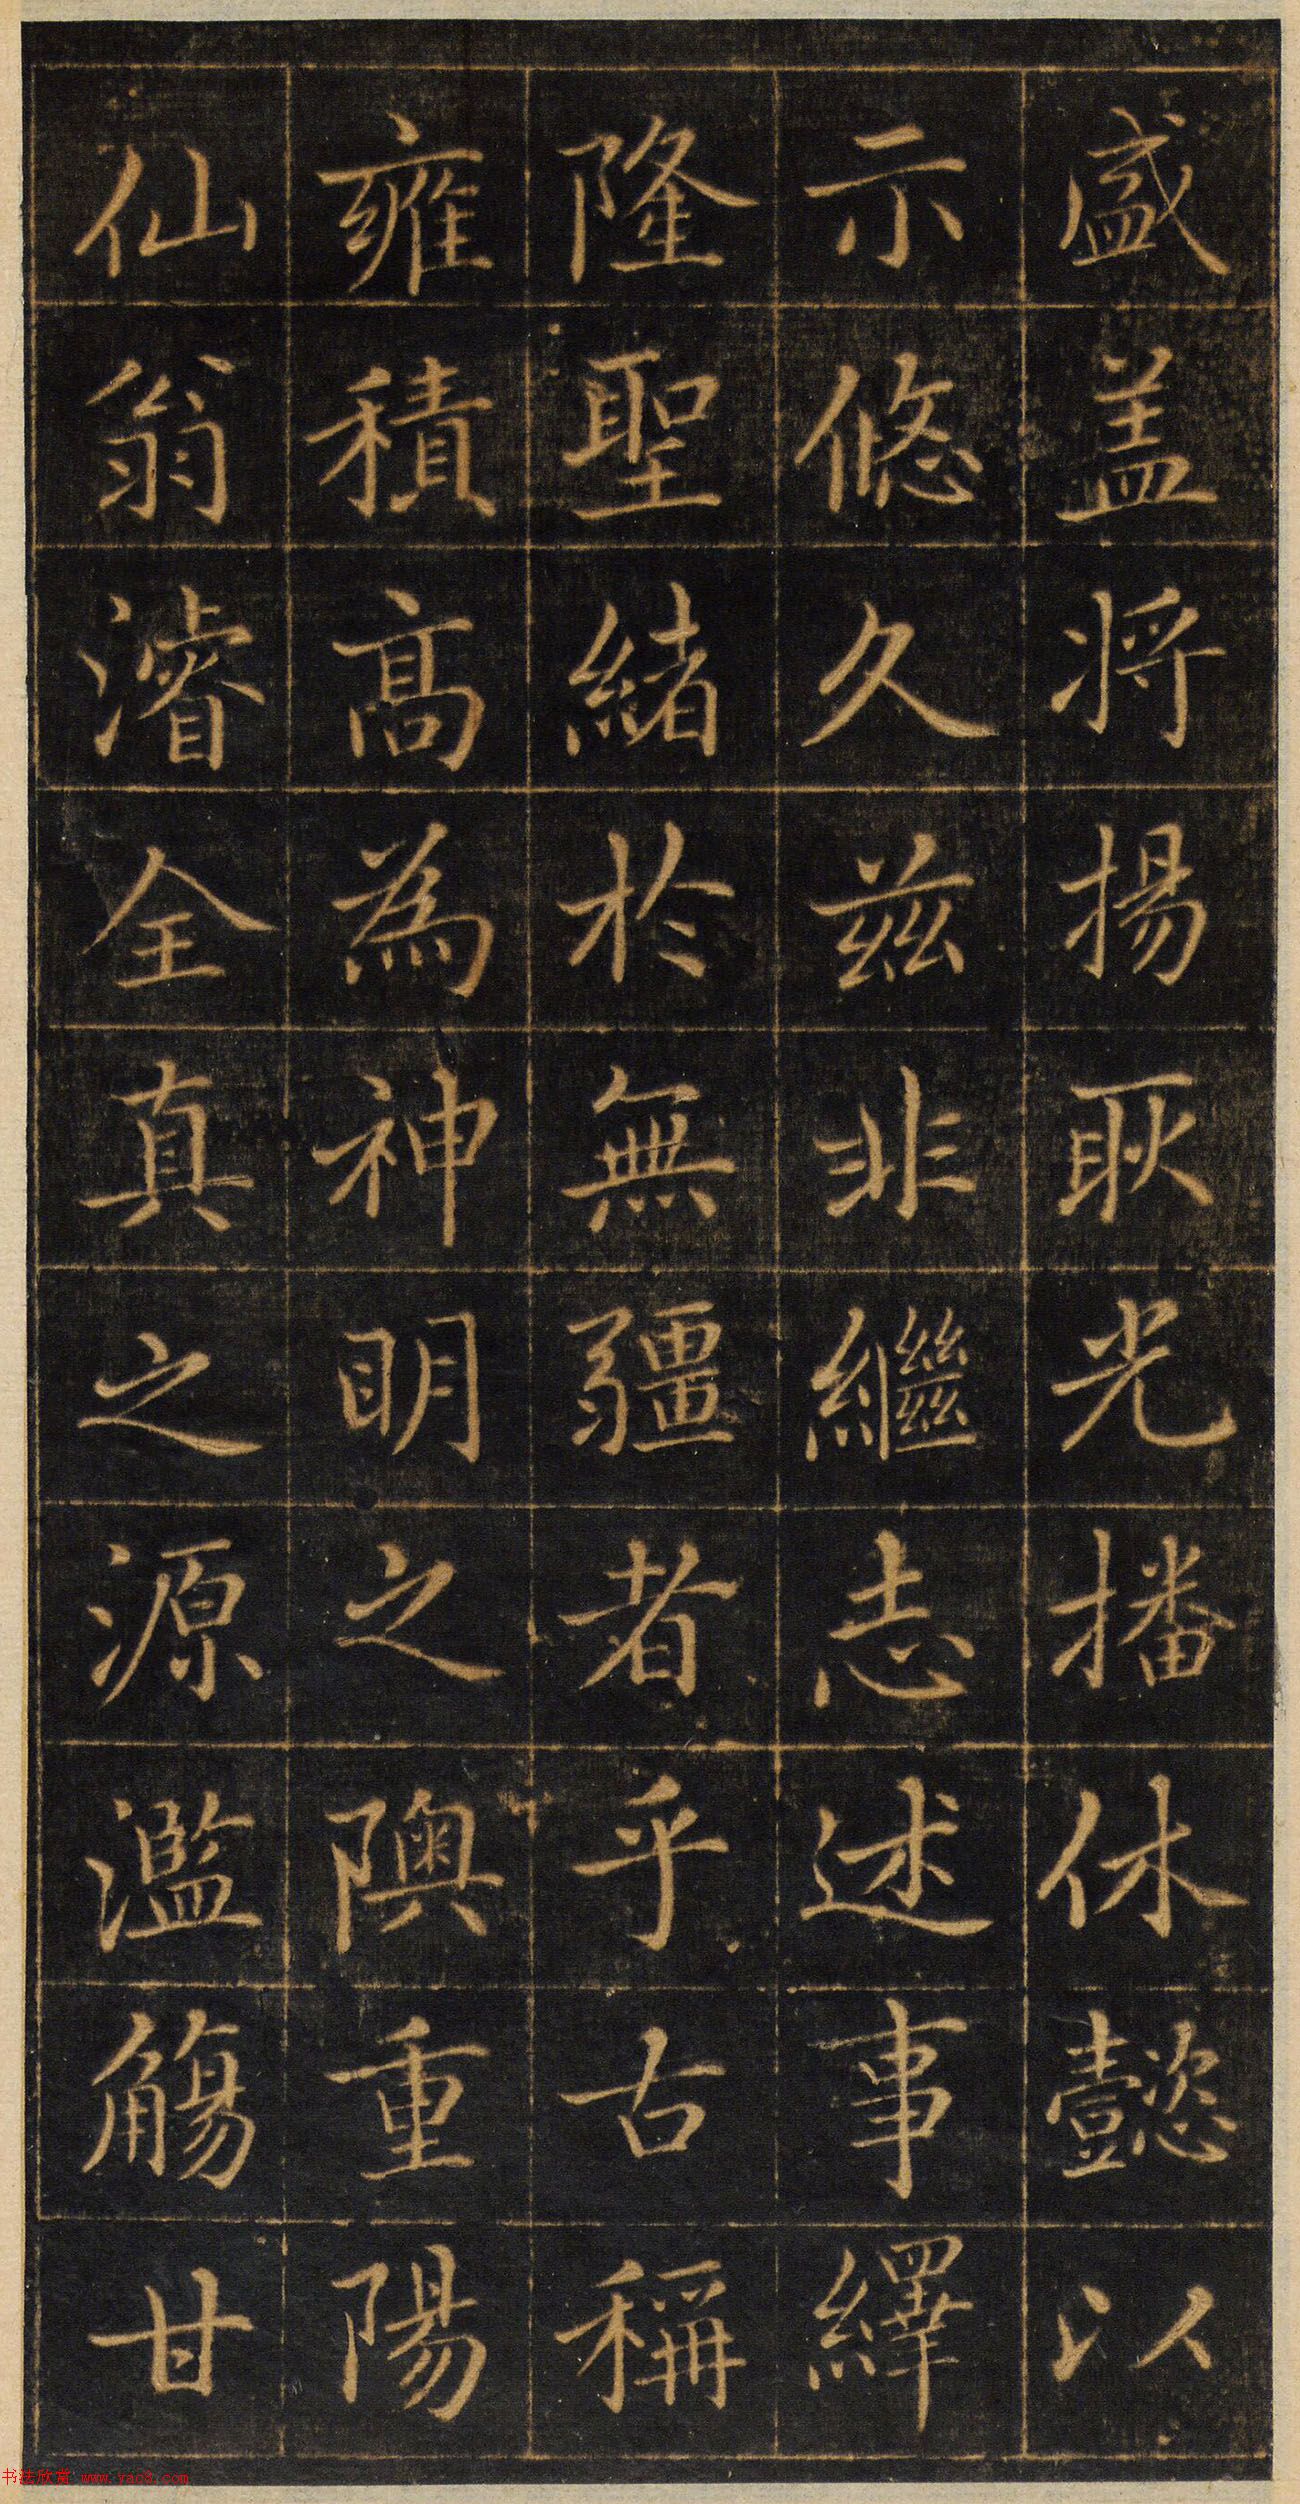 盛盖将揚耿光播休懿以
示悠久兹非繼志述事繹
隆聖緒於無疆者乎古稱
雍積高為神明之隩重陽
仙翁濬全真之源濫觴甘
书法欣赏 www.yac8.com